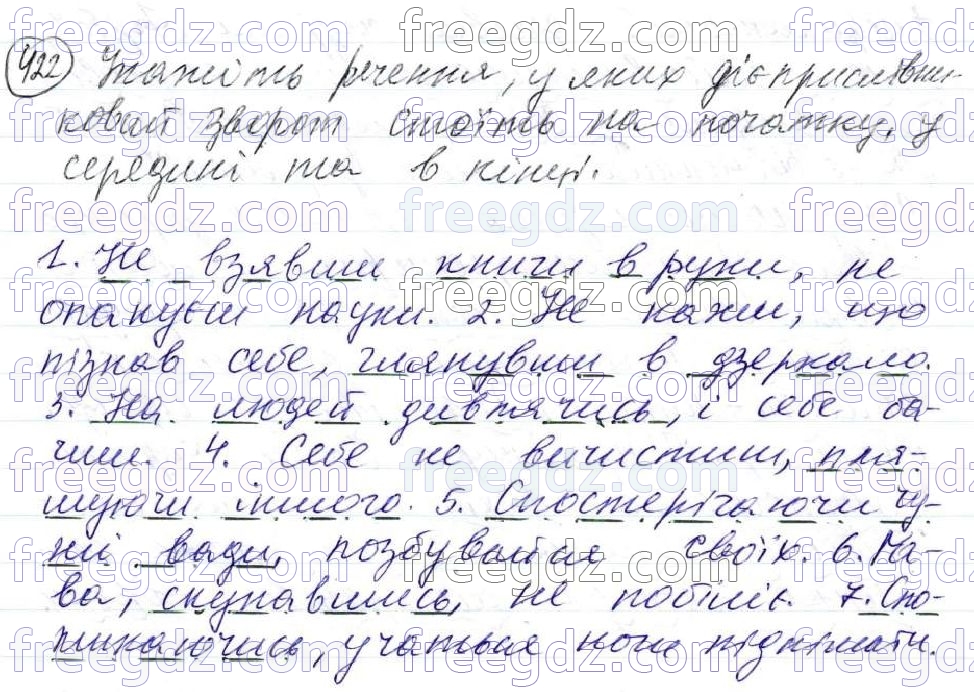 422 Укажіть речення, у яких дієприслівни-
ковий зворот стоїть на початку, у
середині та в кінці.
1. Не взявши книги в руки, не
опануєш науки. 2. Не кажи, що
пізнав себе, глянувши в дзеркало.
3. На людей дивлячись, і себе ба-
чиш. 4. Себе не вичистиш, пля-
муючи іншого. 5. Спостерігаючи чу-
жі вади, позбувайся своїх. 6. Га-
ва, скупавшись, не побіліє. 7. Спо-
тикаючись, учаться ноги піднімати.
freegdz.com